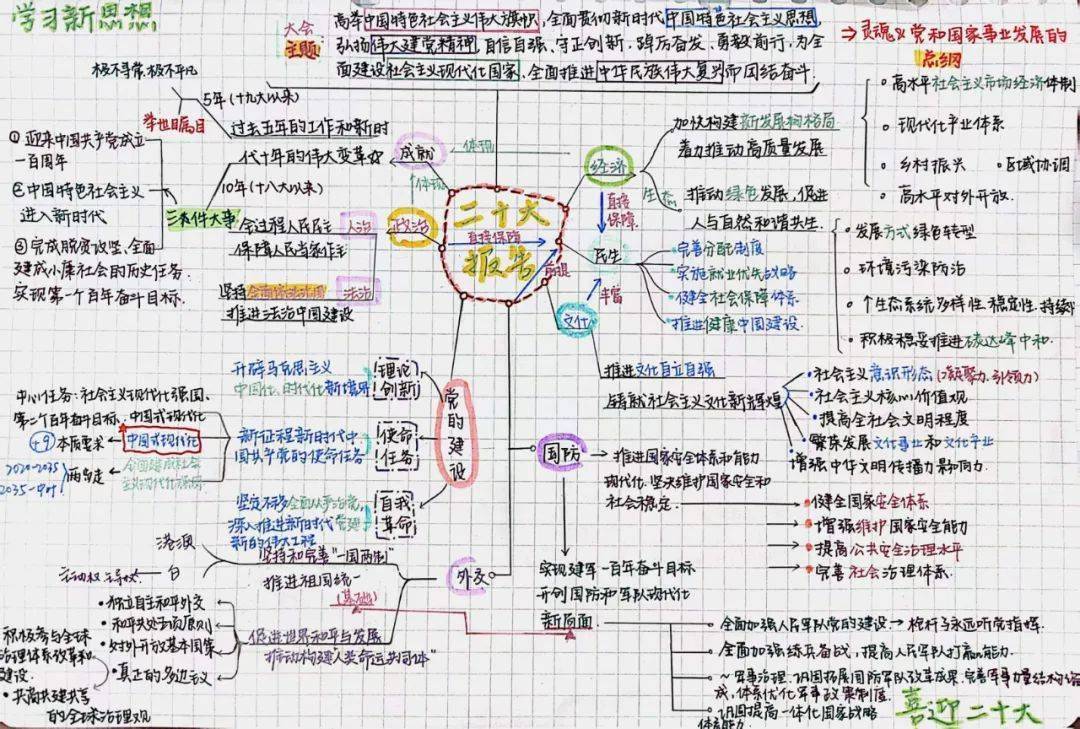 学习新思想
大会主题:
高举中国特色社会主义伟大旗帜,全面贯彻新时代中国特色社会主义思想,
弘扬伟大建党精神,自信自强、守正创新,踔厉奋发、勇毅前行,为全
面建设社会主义现代化国家、全面推进中华民族伟大复兴而团结奋斗.
⇒灵魂及党和国家事业发展的
总纲
极不寻常、极不平凡
5年(十九大以来)
举世瞩目
过去五年的工作和新时
代十年的伟大变革
10年(十八大以来)
三件大事
① 迎来中国共产党成立
一百周年
②中国特色社会主义
进入新时代
③ 完成脱贫攻坚、全面
建成小康社会的历史任务.
实现第一个百年奋斗目标.
成就
体现
体现
政治
全过程人民民主
人治
保障人民当家作主
坚持全面依法治国
法治
推进法治中国建设
二十大
直接保障
报告
前提
经济
加快构建新发展格局
着力推动高质量发展
高水平社会主义市场经济体制
现代化产业体系
乡村振兴
区域协调
高水平对外开放.
生态
推动绿色发展,促进
人与自然和谐共生.
发展方式绿色转型
环境污染防治
个生态系统多样性 稳定性 持续
积极稳妥推进碳达峰中和.
直接
保障.
民生
完善分配制度
实施就业优先战略
健全社会保障体系
推进健康中国建设.
丰富
文化
推进文化自立自强
铸就社会主义文化新辉煌
社会主义意识形态(凝聚力、引领力)
社会主义核心价值观
提高全社会文明程度
繁荣发展文化事业和文化产业
增强中华文明传播力影响力.
党的建设
理论
创新
开辟马克思主义
中国化、时代化新境界
使命
任务
新征程新时代中
国共产党的使命任务
中心任务:社会主义现代化强国,
第二个百年奋斗目标、中国式现代化
+9
本质要求
中国式现代化
2020-2035
2035-
两步走
全面建成社会
主义现代化强国
自我
革命
坚定不移全面从严治党,
深入推进新时代党建
新的伟大工程
国防
推进国家安全体系和能力
现代化.坚决维护国家安全和
社会稳定.
健全国家安全体系
增强维护国家安全能力
提高公共安全治理水平
完善社会治理体系.
实现建军一百年奋斗目标
开创国防和军队现代化
新局面
全面加强人民军队党的建设→枪杆子永远听党指挥.
全面加强练兵备战,提高人民军队打赢能力.
~军事治理.巩固拓展国防军队改革成果.完善军事力量结构编
成,体系优化军事政策制度.
巩固提高一体化国家战略
体系能力
外交
坚持和完善"一国两制"
推进祖国统一
(基础)
港澳
台
主动权 主导权
促进世界和平与发展
推动构建"人类命运共同体"
独立自主和平外交
和平共处五项原则
对外开放基本国策
真正的多边主义
积极参与全球
治理体系改革和
建设.
共商共建共享
的全球治理观
喜迎二十大